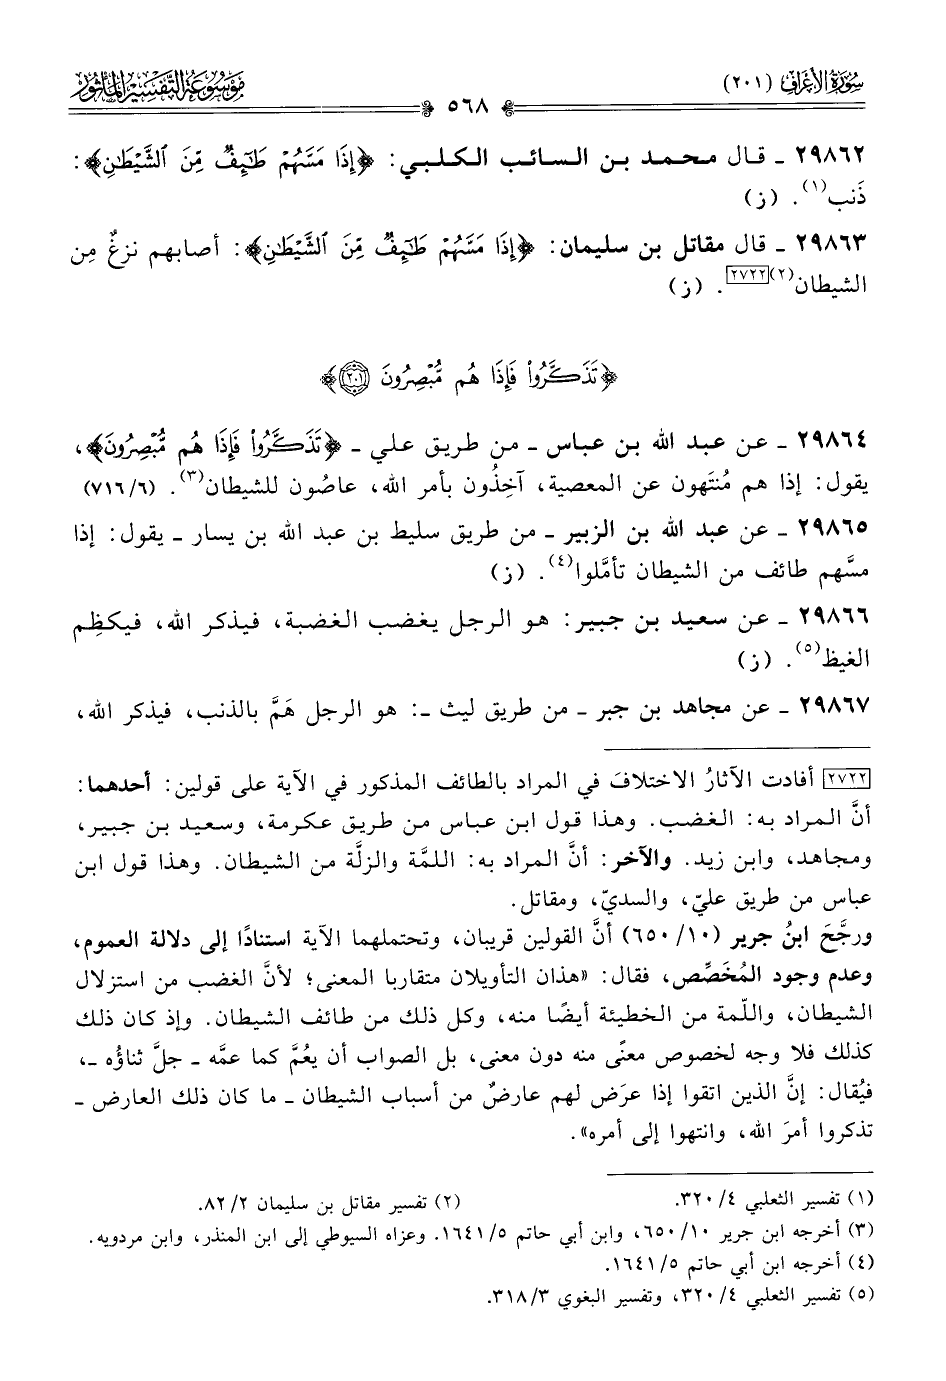 سُورَةُ الأَعْرَافِ (٢٠١)
٥٦٨
مَوْسُوعَةُ التَّفْسِيرِ المَأْثُورِ
٢٩٨٦٢ ـ قال محمد بن السائب الكلبي: ﴿إِذَا مَسَّهُمْ طَٰٓئِفٌ مِّنَ ٱلشَّيْطَٰنِ﴾:
ذَنب(١). (ز)
٢٩٨٦٣ ـ قال مقاتل بن سليمان: ﴿إِذَا مَسَّهُمْ طَٰٓئِفٌ مِّنَ ٱلشَّيْطَٰنِ﴾: أصابهم نزغٌ مِن
الشيطان(٢)[٢٧٢٢]. (ز)
﴿تَذَكَّرُواْ فَإِذَا هُم مُّبْصِرُونَ ٢٠١﴾
٢٩٨٦٤ ـ عن عبد الله بن عباس ـ من طريق علي ـ ﴿تَذَكَّرُواْ فَإِذَا هُم مُّبْصِرُونَ﴾،
يقول: إذا هم مُنتَهون عن المعصية، آخِذُون بأمر الله، عاصُون للشيطان(٣). (٧١٦/٦)
٢٩٨٦٥ ـ عن عبد الله بن الزبير ـ من طريق سليط بن عبد الله بن يسار ـ يقول: إذا
مسَّهم طائف من الشيطان تأمَّلوا(٤). (ز)
٢٩٨٦٦ ـ عن سعيد بن جبير: هو الرجل يغضب الغضبة، فيذكر الله، فيكظِم
الغيظ(٥). (ز)
٢٩٨٦٧ ـ عن مجاهد بن جبر ـ من طريق ليث ـ: هو الرجل هَمَّ بالذنب، فيذكر الله،
[٢٧٢٢] أفادت الآثارُ الاختلافَ في المراد بالطائف المذكور في الآية على قولين: أحدهما:
أنَّ المراد به: الغضب. وهذا قول ابن عباس من طريق عكرمة، وسعيد بن جبير،
ومجاهد، وابن زيد. والآخر: أنَّ المراد به: اللمَّة والزلَّة من الشيطان. وهذا قول ابن
عباس من طريق عليّ، والسديّ، ومقاتل.
ورجَّحَ ابنُ جرير (٦٥٠/١٠) أنَّ القولين قريبان، وتحتملهما الآية استنادًا إلى دلالة العموم،
وعدم وجود المُخَصِّص، فقال: «هذان التأويلان متقاربا المعنى؛ لأنَّ الغضب من استزلال
الشيطان، واللّمة من الخطيئة أيضًا منه، وكل ذلك من طائف الشيطان. وإذ كان ذلك
كذلك فلا وجه لخصوص معنًى منه دون معنى، بل الصواب أن يعُمَّ كما عمَّه ـ جلَّ ثناؤُه ـ،
فيُقال: إنَّ الذين اتقوا إذا عرَض لهم عارضٌ من أسباب الشيطان ـ ما كان ذلك العارض ـ
تذكروا أمرَ الله، وانتهوا إلى أمره».
(١) تفسير الثعلبي ٣٢٠/٤. (٢) تفسير مقاتل بن سليمان ٨٢/٢.
(٣) أخرجه ابن جرير ٦٥٠/١٠، وابن أبي حاتم ١٦٤١/٥. وعزاه السيوطي إلى ابن المنذر، وابن مردويه.
(٤) أخرجه ابن أبي حاتم ١٦٤١/٥.
(٥) تفسير الثعلبي ٣٢٠/٤، وتفسير البغوي ٣١٨/٣.